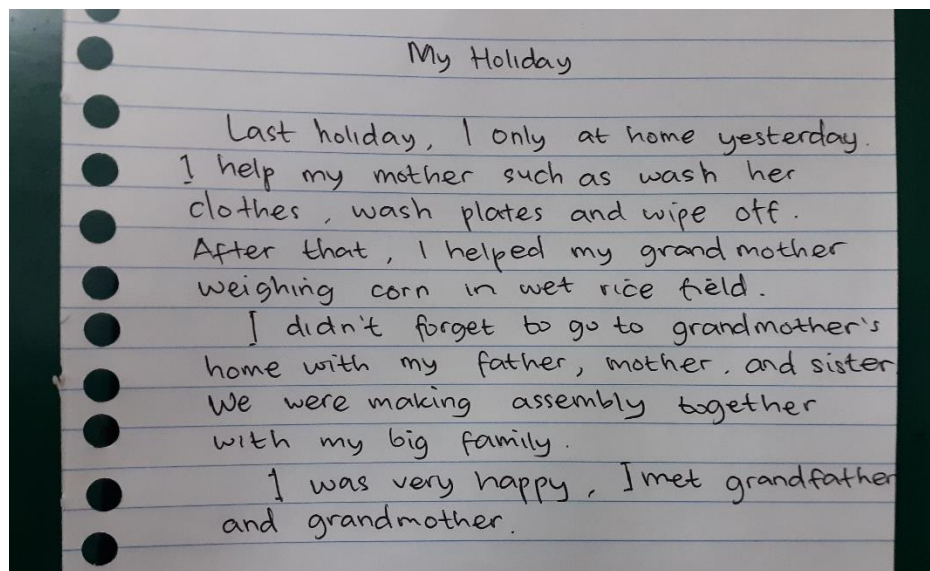 My Holiday
Last holiday, I only at home yesterday.
I help my mother such as wash her
clothes, wash plates and wipe off.
After that, I helped my grand mother
weighing corn in wet rice field.
I didn't forget to go to grandmother's
home with my father, mother, and sister
We were making assembly together
with my big family.
I was very happy, I met grandfather
and grandmother.